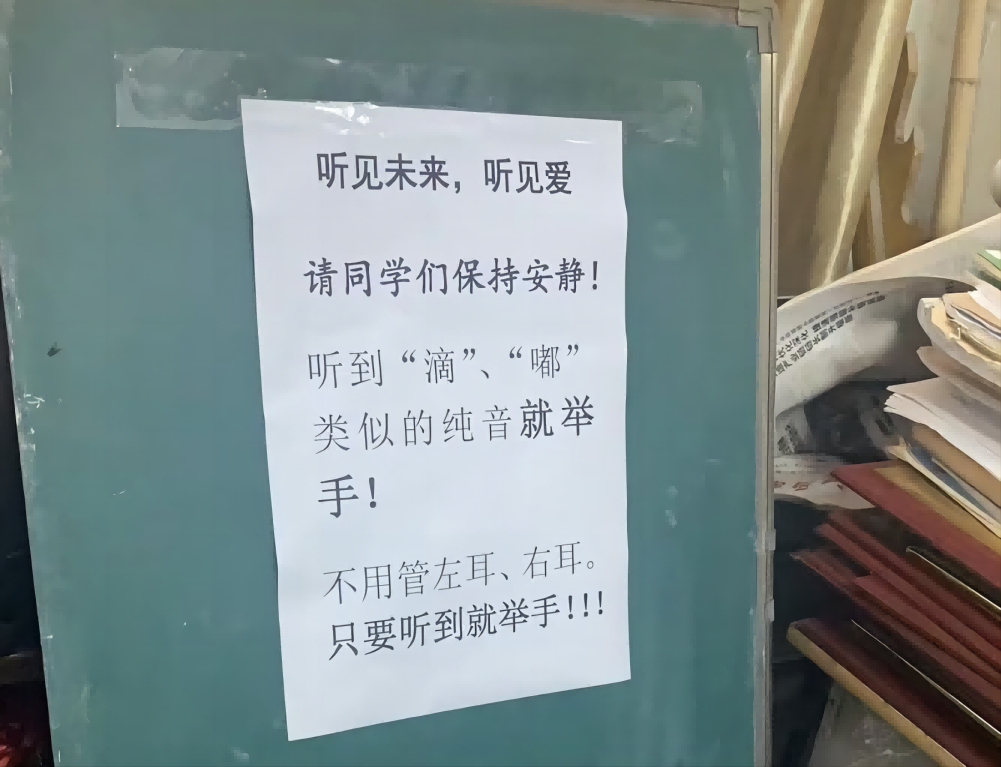 听见未来，听见爱
请同学们保持安静！
听到“滴”、“嘟”
类似的纯音就举
手！
不用管左耳、右耳。
只要听到就举手！！！